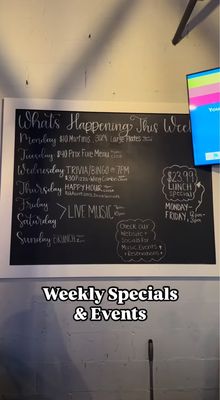 What's Happening This Week
Monday $10 Martinis, Large Plates
Tuesday $40 Prix Fixe Menu
Wednesday TRIVIA/BINGO @ 7PM
$30 Pizza + Wing Combo
Thursday HAPPY HOUR
Friday
Saturday
>LIVE MUSIC
Sunday BRUNCH
$23.99
LUNCH
Specials
MONDAY-
FRIDAY
Check our
Website +
Socials for
Music Events
+ Reservations
Weekly Specials
& Events